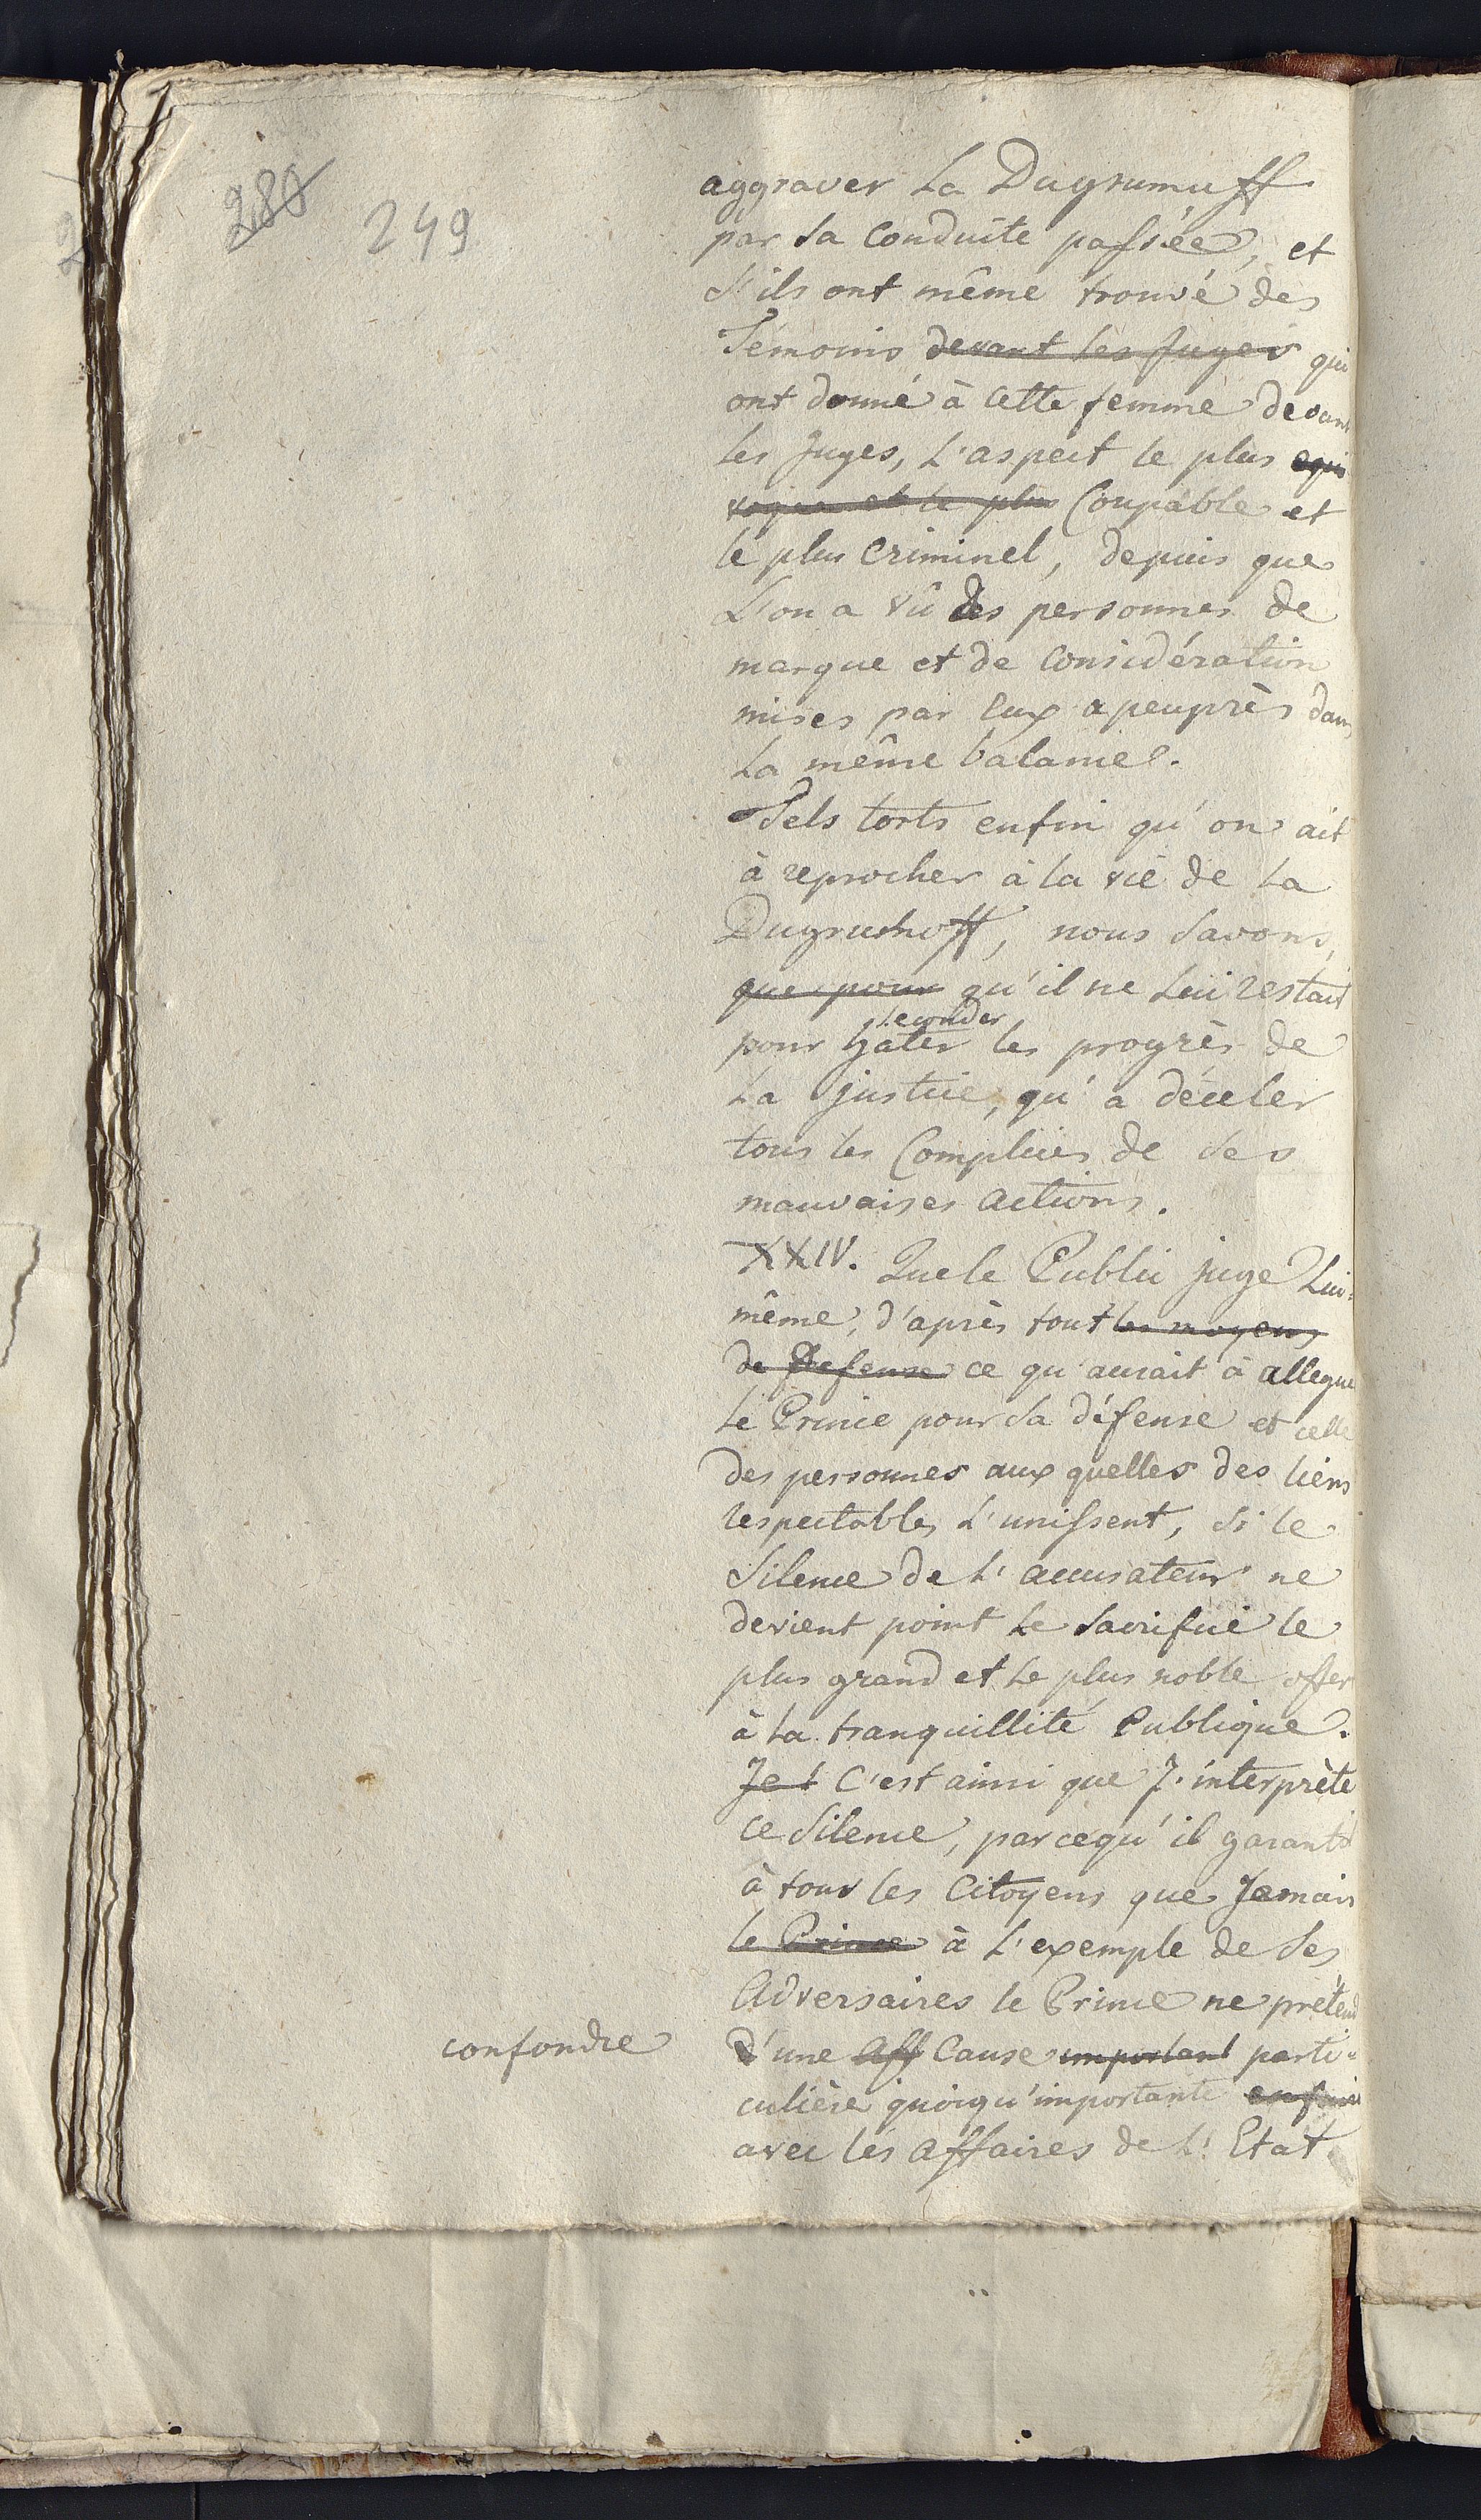 280
249
aggraver La Dugrumuff
par sa Conduite passée, et
s'ils ont même trouvé des
Témoins devant les Juges qui
ont donné à Cette femme devant
les Juges, L'aspect le plus equi
voque et le plus Coupable et
le plus Criminel, depuis que
L'on a vû des personnes de
marque et de Considération
mises par Eux apeuprès dans
La même balance.
Tels torts enfin qu'on ait
à reprocher à la vie de La
Dugrumoff, nous savons,
que pour qu'il ne Lui restait
seconder
pour hâter les progrès de
La justice, qu'a déceler
tous les Complices de ses
mauvaises actions.
XXIV. Que le Public juge Lui=
même, d'après tout les moyens
de Défense ce qu'aurait à allegue
le Prince pour Sa défense et celle
des personnes aux quelles des liens
respectables L'unissent, si le
Silence de L'accusateur ne
devient point Le Sacrifice le
plus grand et Le plus noble offer
à La tranquillité Publique.
Je l C'est ainsi que J'interprète
Ce Silence, parcequ'il garantit
à tous les Citoyens que Jamais
le Prince à L'exemple de Ses
Adversaires le Prince ne prétend
confondre
d'une Aff Cause important parti=
culière quoiqu'importante
avec les affaires de L'Etat